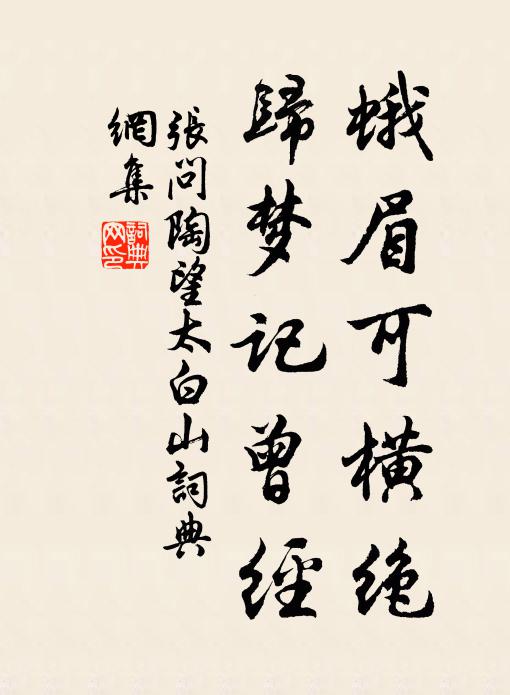 蛾眉可横绝
歸梦記曾經
張问陶望太白山詞典
網集
詞典
网印